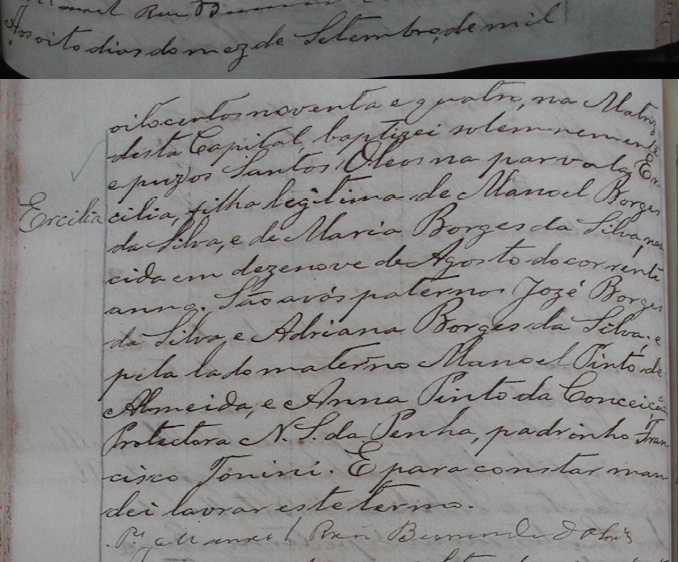 Aos oito dias do mez de Setembro, de mil
oitocentos noventa e quatro, na Matriz
desta Capital, baptizei solemnemente
e puz os Santos Oleos na parvola Er-
Ercilia
cilia, filha legitima de Manoel Borges
da Silva, e de Maria Borges da Silva, nas
cida em dezenove de Agosto do corrente
anno. São avós paternos Jozé Borges
da Silva, e Adriana Borges da Silva; e
pela lado materno Manoel Pinto de
Almeida, e Anna Pinto da Conceição
Protectora N. S. da Penha, padrinho Fran
cisco Tonini. E para constar man
dei lavrar este termo.